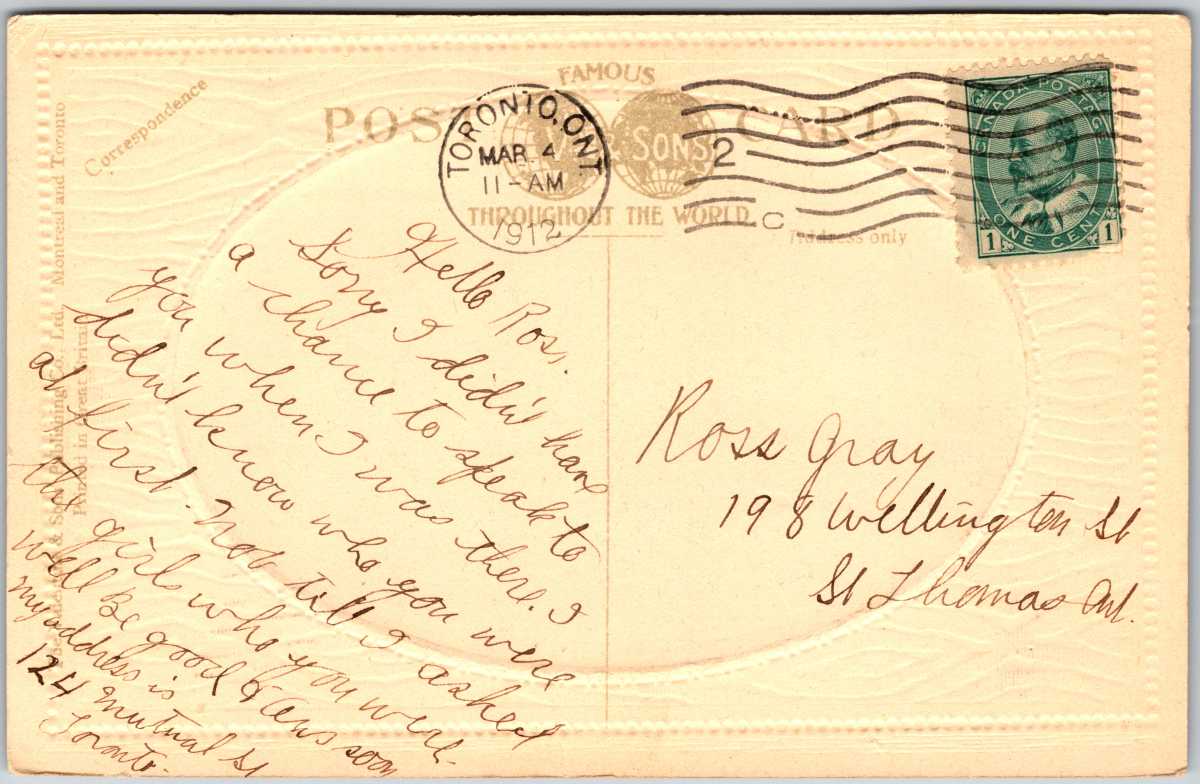 Correspondence
FAMOUS
POST CARD
SONS
THROUGHOUT THE WORLD
Address only
TORONTO, ONT
MAR 4
11-AM
1912
2
C
CANADA POSTAGE
1 ONE CENT 1
Montreal and Toronto
& Son Publishing Co., Ltd.
Printed in Great Britain
Hello Ross.
Sorry I didn't have
a chance to speak to
you when I was there. I
didn't know who you were
at first. Not till I asked
the girls who you were.
well be good & ans soon
my address is
124 mutual St
Toronto.
Ross Gray
198 Wellington St
St Thomas Ont.